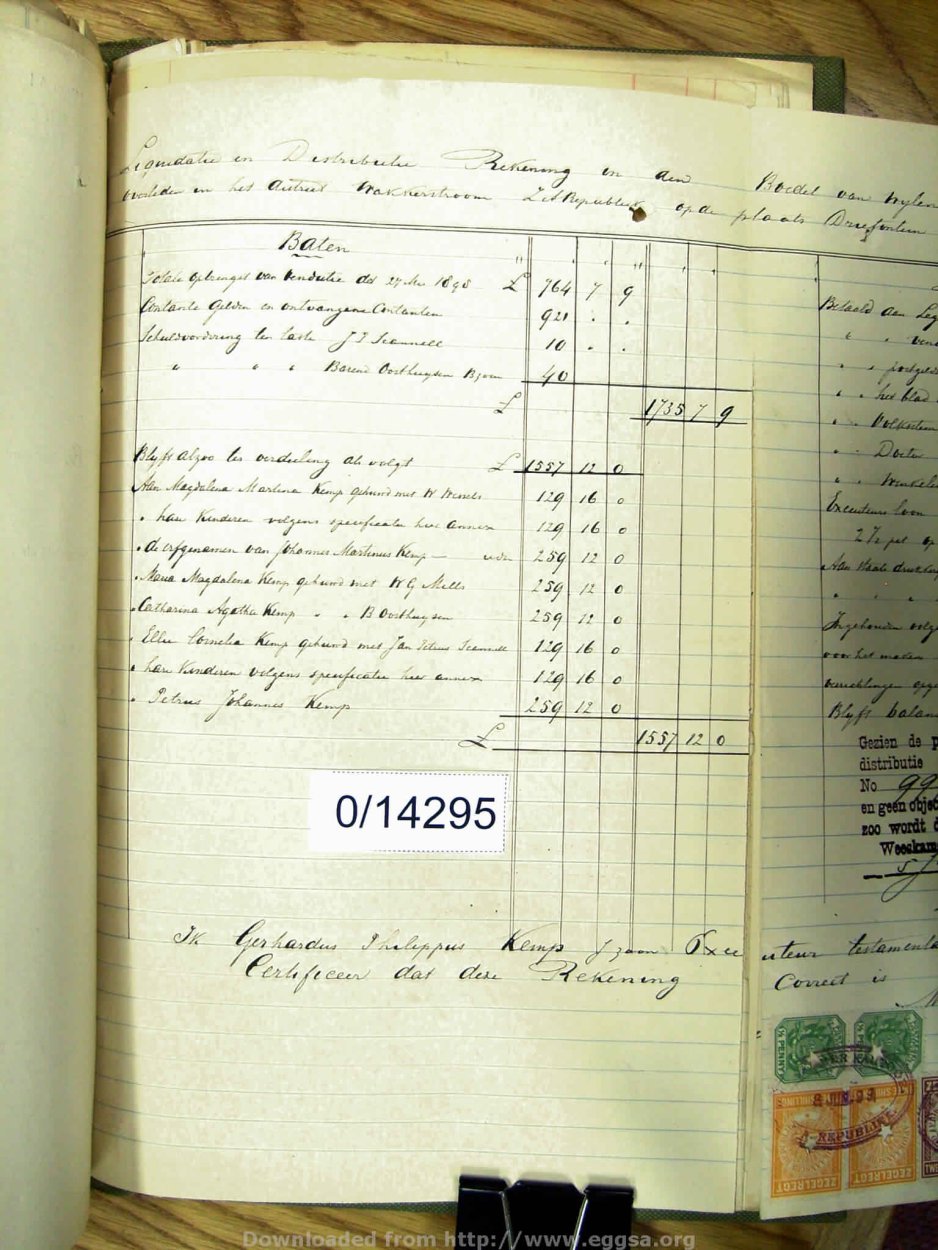 Liquidatie en Distributie Rekening in den Boedel van wylen
overleden in het district Wakkerstroom Z A Republiek op de plaats Driefontein
Baten
Totale opbrengst van Vendutie dd 27 1898 £ 764 7 9
Contante Gelden en ontvangene Contanten 921 . .
Schuldvordering ten laste J J Scannell 10 . .
" " " Barend Oosthuysen Bzoon 40
£ 1735 7 9
Blyft alzoo ter verdeeling als volgt £ 1557 12 0
Aan Magdalena Martina Kemp gehuwd met W 129 16 0
" hare Kinderen volgens specificatie hier annex 129 16 0
" de erfgenamen van Johannes Martinus Kemp — 259 12 0
" Maria Magdalena Kemp gehuwd met W G Mills 259 12 0
" Catharina Agatha Kemp " " B Oosthuysen 259 12 0
" Ellie Cornelia Kemp gehuwd met Jan Petrus Scannell 129 16 0
" hare Kinderen volgens specificatie hier annex 129 16 0
" Petrus Johannes Kemp 259 12 0
£ 1557 12 0
0/14295
Ik Gerhardus Philippus Kemp J zoon Executeur testamenta
Certificeer dat deze Rekening Correct is
Betaald aan Leg
" " vend
" " postgeld
" " het blad
" " Volkstem
" " Doctor
" " Winkelie
Executeurs loon
2½ pct op
Aan Staats drukkery
Ingehouden volg
voor het maken
verrichtingen opge
Blyft balans
Gezien de p
distributie
No 99
en geen objec
zoo wordt d
Weeskam
½ PENNY
ZEGELREGT
ZEGELREGT
REPUBLIEK
Downloaded from http://www.eggsa.org